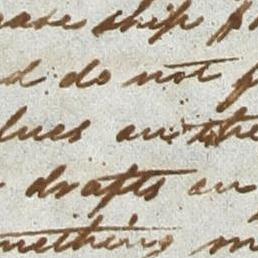 ease ship
d do not
lues on the
drafts on
mething m